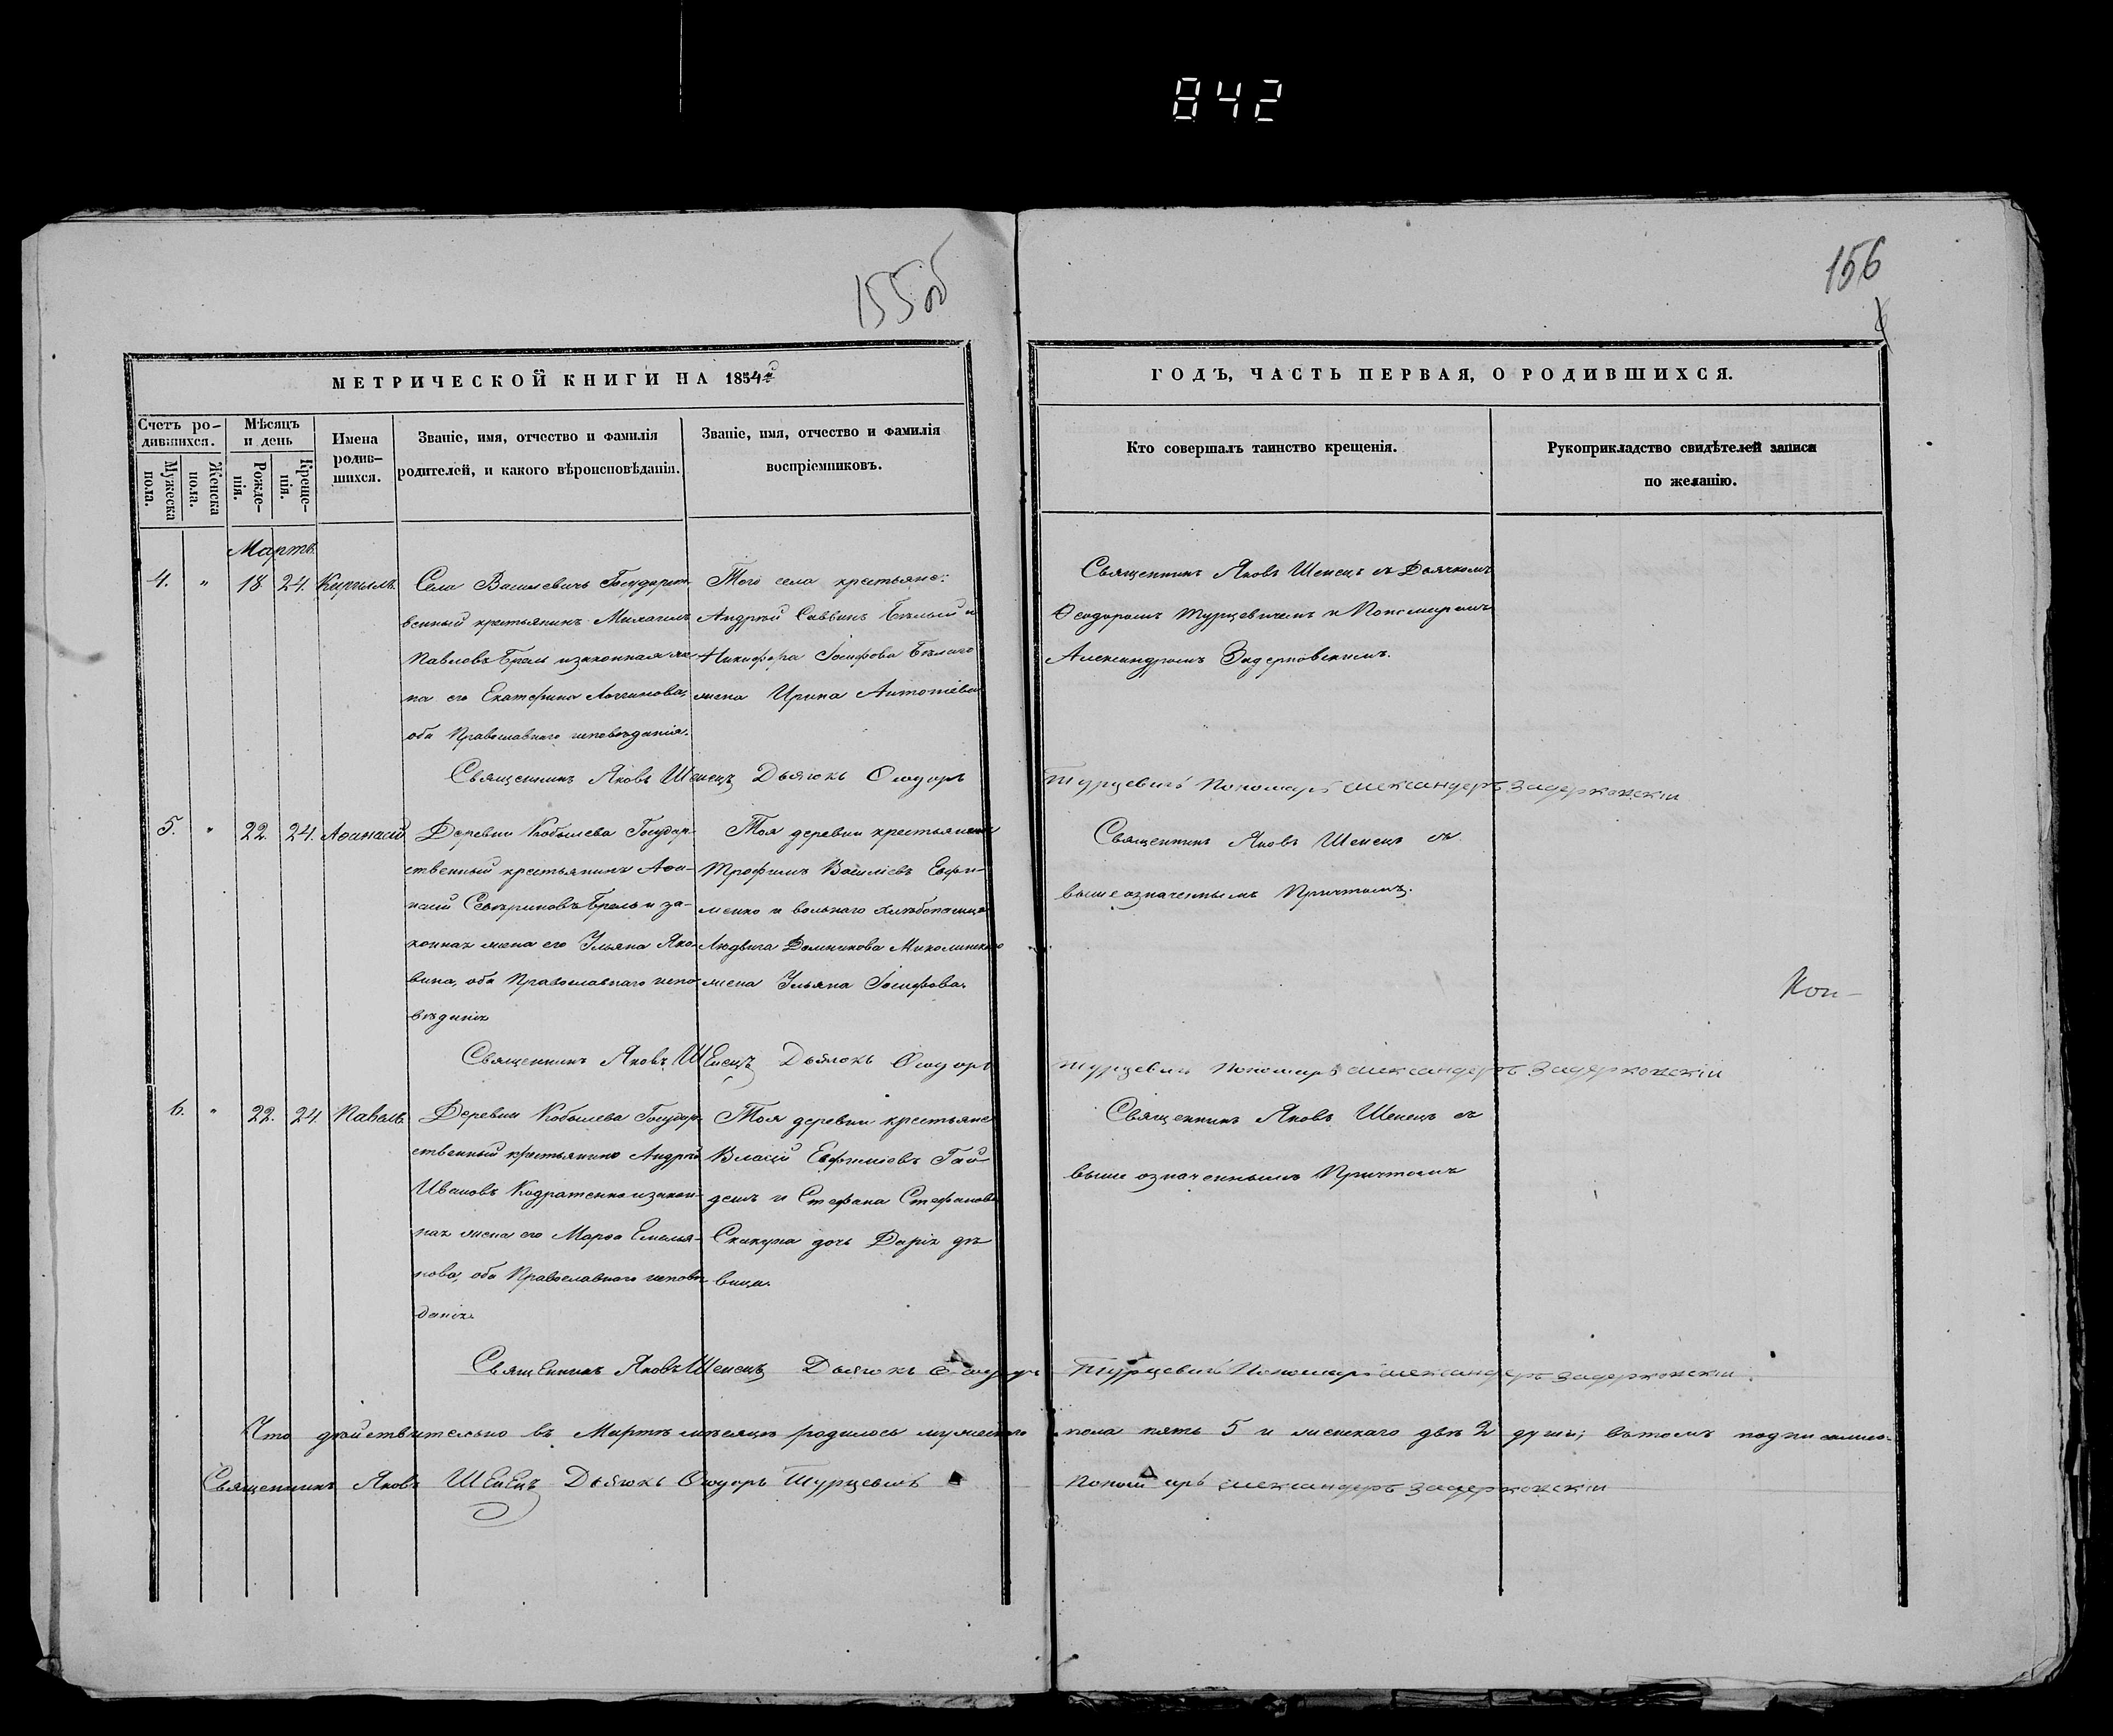 842
155об
156
МЕТРИЧЕСКОЙ КНИГИ НА 1854й
ГОДЪ, ЧАСТЬ ПЕРВАЯ, О РОДИВШИХСЯ.
Счетъ ро-
дившихся.
Мужеска
пола.
Женска
пола.
Мѣсяцъ
и день
Рожде-
нія.
Креще-
нія.
Имена
родив-
шихся.
Званіе, имя, отчество и фамилія
родителей, и какого вѣроисповѣданія.
Званіе, имя, отчество и фамилія
воспріемниковъ.
Кто совершалъ таинство крещенія.
Рукоприкладство свидѣтелей записи
по желанію.
Мартъ.
4. " 18 24. Кириллъ
Села Василевичъ Государст-
венный крестьянинъ Михаилъ
Павловъ Брель и законная же-
на его Екатерина Логгинова,
оба Православнаго исповѣданія.
Того села крестьяне:
Андрей Саввинъ Бѣлый и
Никифора Іосифова Бѣлаго
жена Ирина Антоніева
Священникъ Яковъ Шенецъ съ Дьячкомъ
Ѳеодоромъ Турцевичемъ и Пономаремъ
Александромъ Задерковскимъ.
Священникъ Яковъ Шенецъ Дьячокъ Ѳеодоръ Турцевичъ Пономарь Александеръ Задерковскіи
5. " 22. 24. Аѳанасій
Деревни Кобылева Государ-
ственный крестьянинъ Аѳа-
насій Севериновъ Брель и за-
конная жена его Ульяна Яко-
вина, оба Православнаго испо-
вѣданія
Тоя деревни крестьянинъ
Трофимъ Васильевъ Ефи-
менко и вольнаго хлѣбопашца
Людвига Доминикова Миколинскаго
жена Ульяна Іосифова.
Священникъ Яковъ Шенецъ съ
вышеозначеннымъ Причтомъ.
Кон-
Священникъ Яковъ Шенецъ Дьячокъ Ѳеодоръ Турцевичъ Пономарь Александеръ Задерковскіи
6. " 22. 24. Павелъ
Деревни Кобылева Государ-
ственный крестьянинъ Андрей
Ивановъ Кодратенко и закон-
ная жена его Марѳа Емелья-
нова, оба Православнаго исповѣ-
данія.
Тоя деревни крестьяне
Власій Евфиміевъ Гай-
демъ и Стефана Стефанова
Скакуна дочь Дарія дѣ-
вица.
Священникъ Яковъ Шенецъ съ
выше означеннымъ Причтомъ
Священникъ Яковъ Шенецъ Дьячокъ Ѳеодоръ Турцевичъ Пономарь Александеръ Задерковскіи
Что дѣйствительно въ Мартѣ мѣсяцѣ родилось мужескаго пола пять 5 и женскаго двѣ 2 души; въ томъ подписались
Священникъ Яковъ Шенецъ Дьячокъ Ѳеодоръ Турцевичъ Пономарь Александеръ Задерковскіи